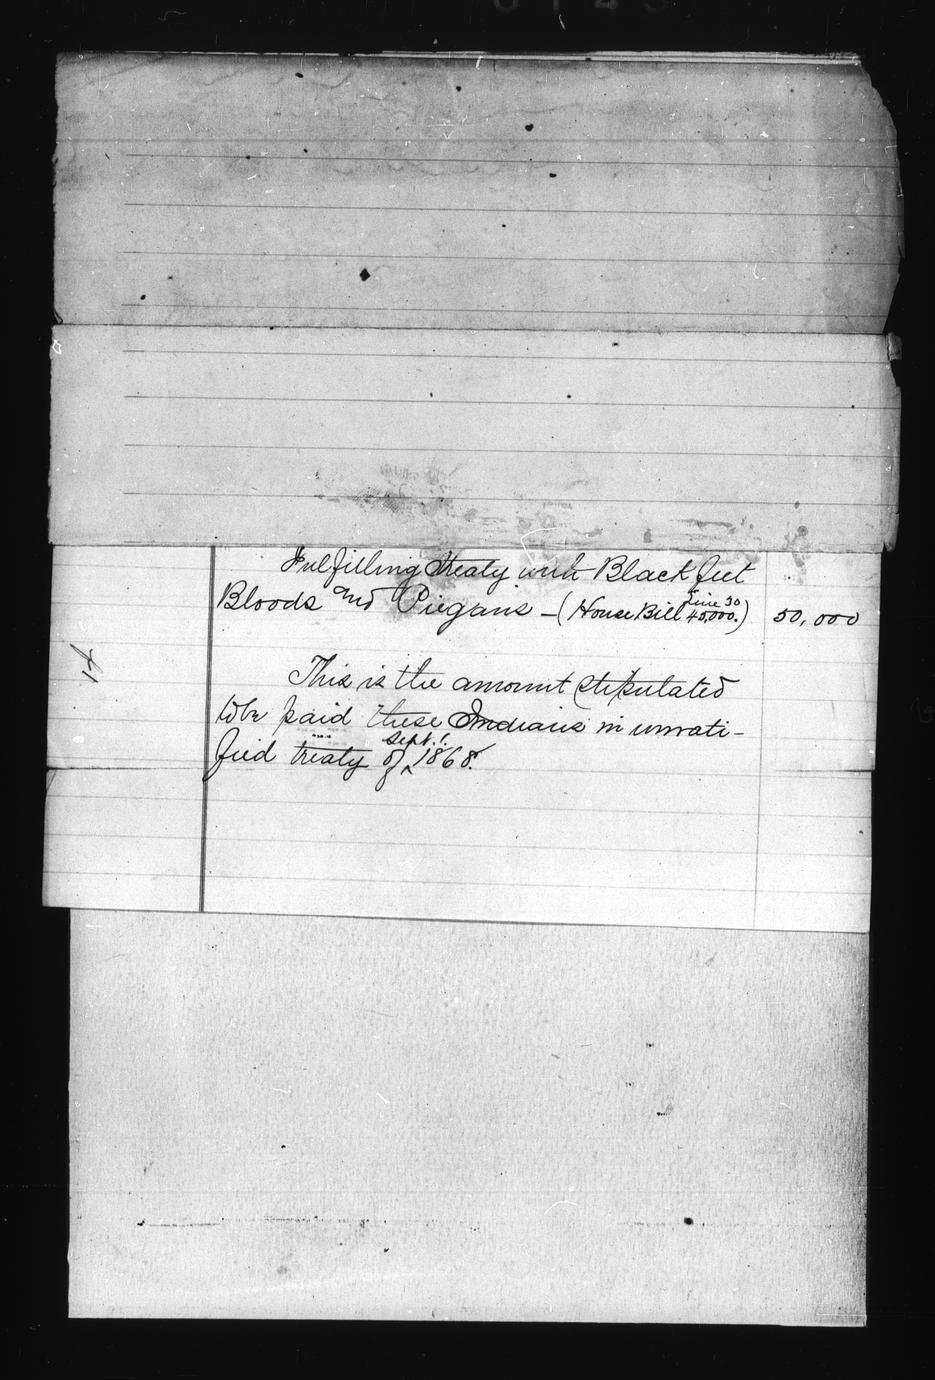 Fulfilling treaty with Blackfeet
Bloods and Piegans - (House Bill Line 30 40,000.) 50,000
14
This is the amount stipulated
to be paid these Indians in unrati-
fied treaty of Sept. 1. 1868.